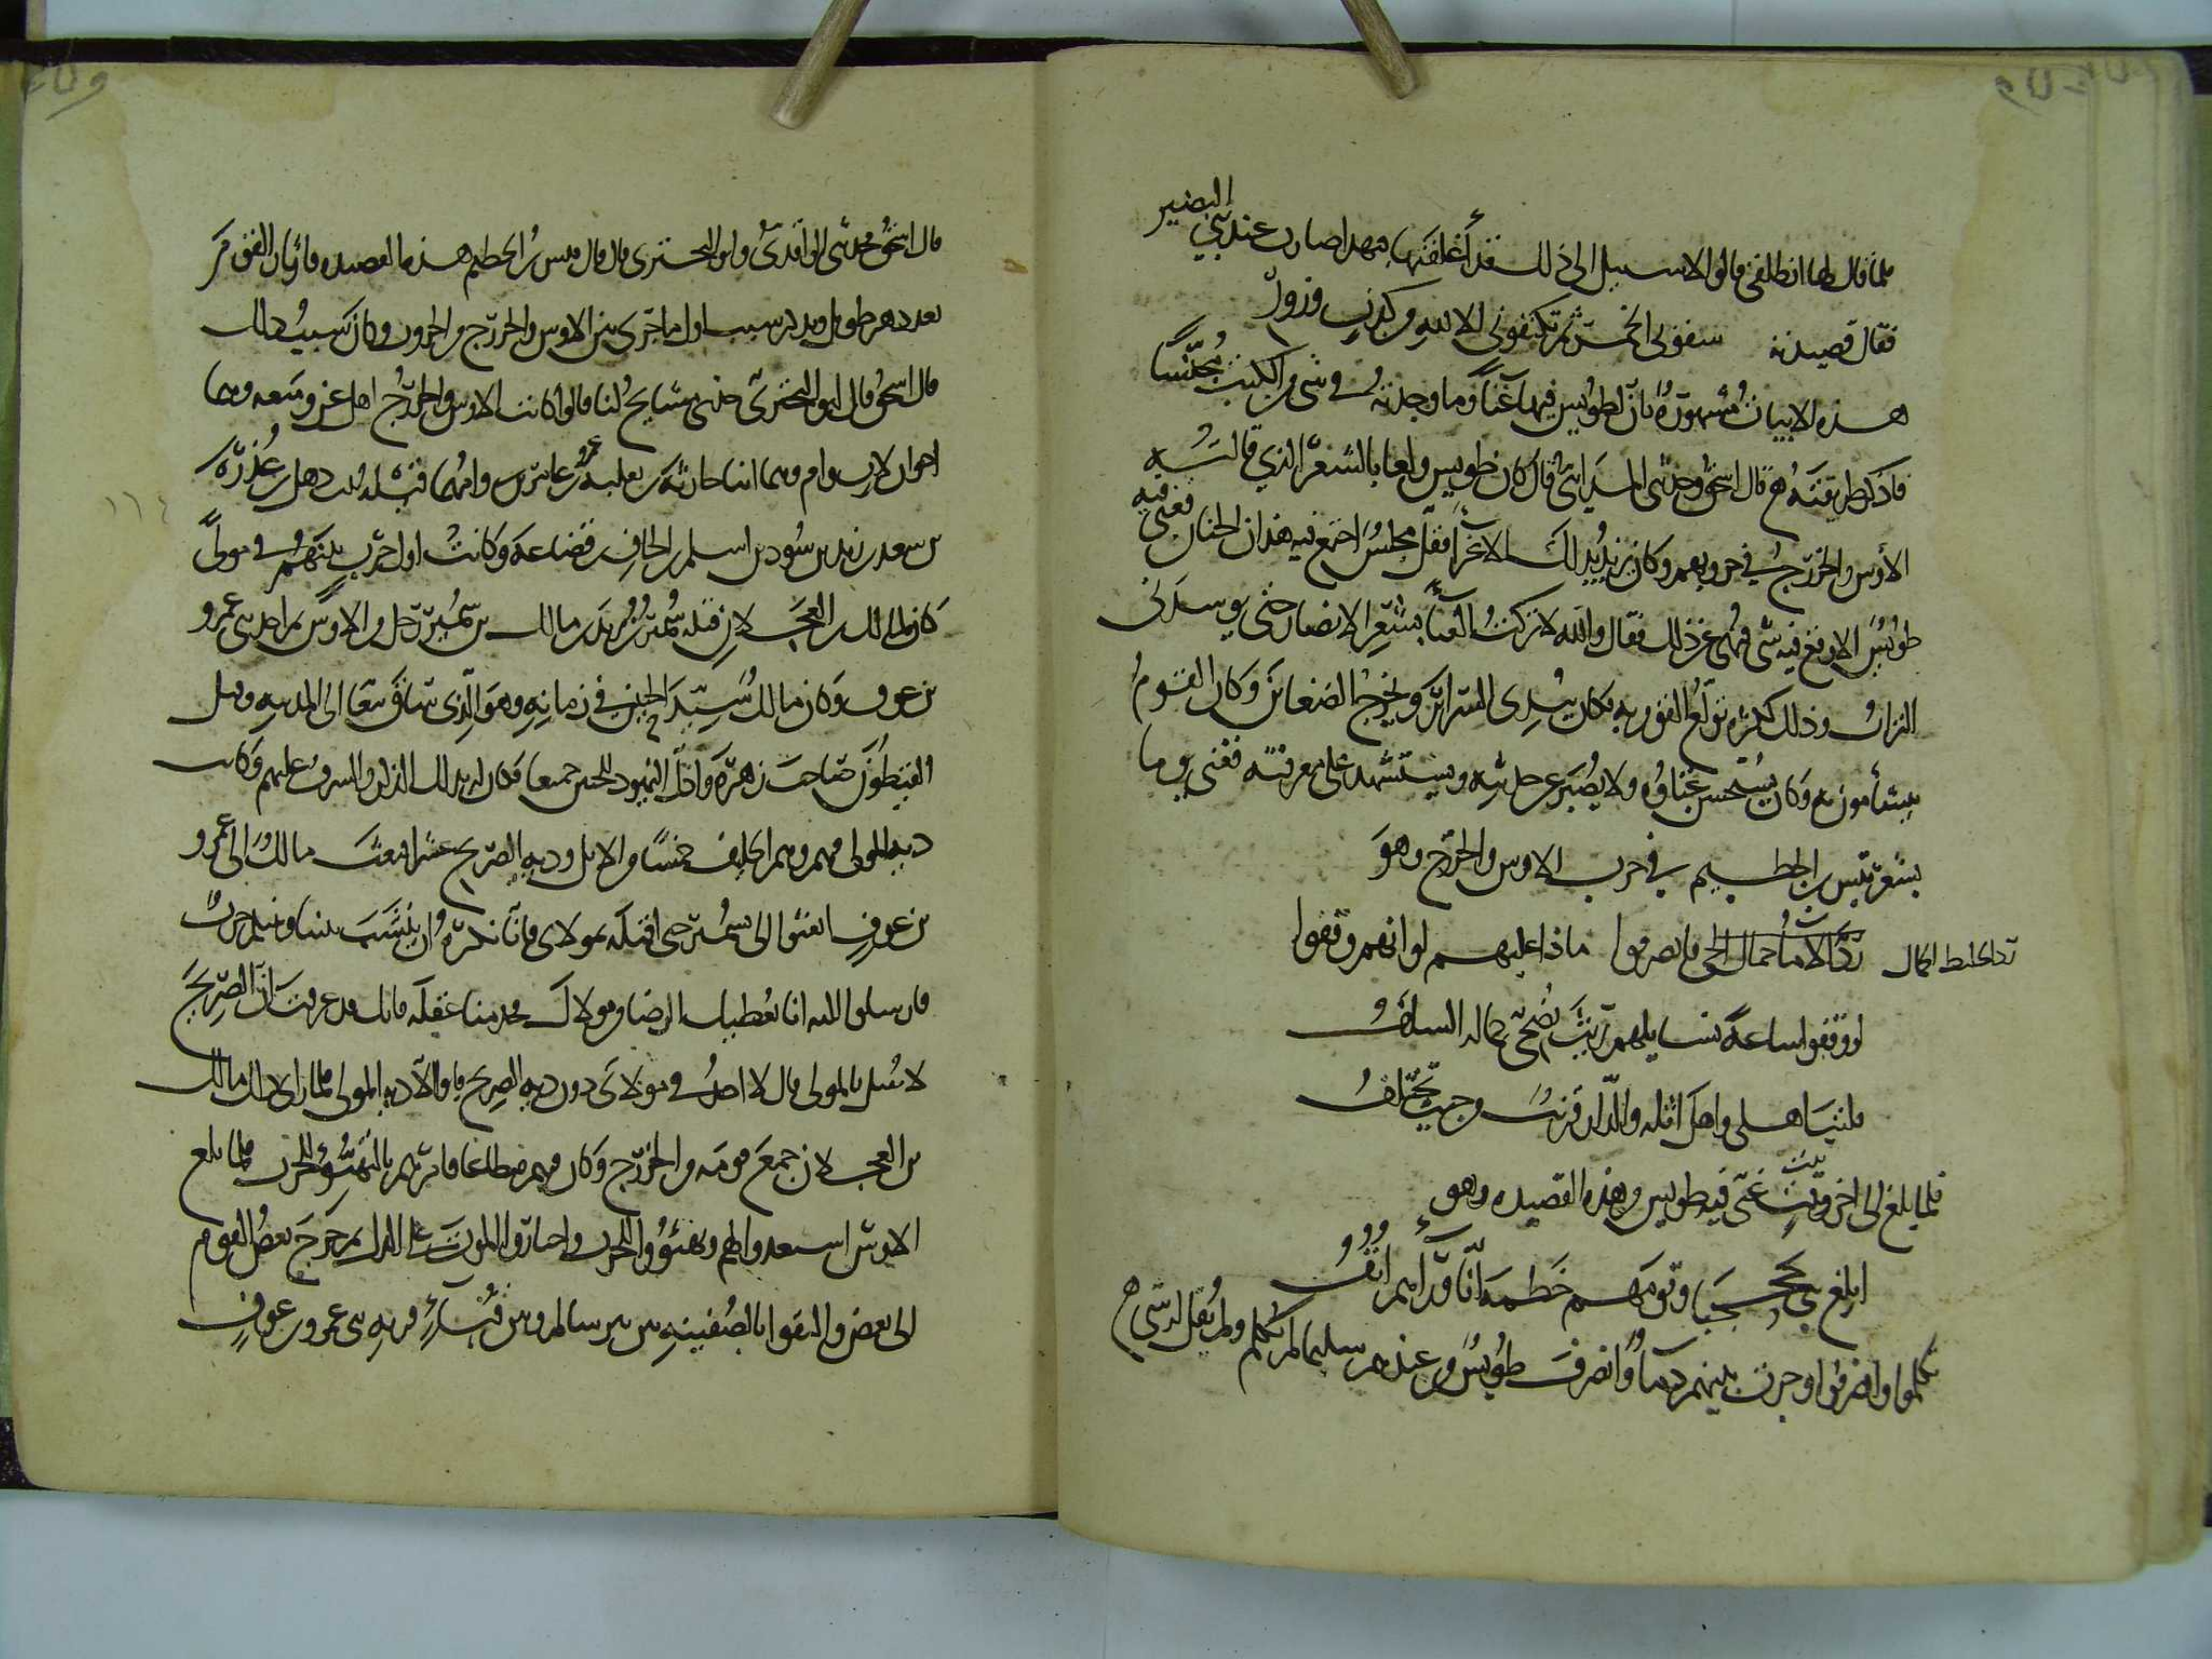 فلما قال لها انطلقي قالوا لا سبيل الى ذلك فقد أغلقتها فبهذا صار عند بني النضير
فقال قصيدته سقوني الخمر ثم تكنفوني الا لله من كذب وزور
هذه الابيات مشهورة بان لطويس فيها غناً وما وجدته في شي من الكتب مجنساً
فاذكر طريقته قال اسحق وحدثني المدايني قال كان طويس ولعا بالشعر الذي قالته
الأوس والخزرج في حروبهم وكان يريد بذلك الاغراء فقل مجلس اجتمع فيه هذان الحيان تغنى فيه
طويس الا وقع فيه شي فنهي عن ذلك فقال والله لا تركت الغناء بشعر الانصار حتى يوسدني
التراب وذلك لكثرة تولع القوم به فكان يبدي السرائر ويخرج الضغائن وكان القوم
يتشأمون به وكان يستحسن غناؤه ولا يصبر عن حديثه ويستشهد على معرفته فغنى يوما
بشعر قيس بن الخطيم في حرب الاوس والخزرج وهو
رد الخليط الجمال فانصرفوا ماذا عليهم لو انهم وقفوا
لو وقفوا ساعة نسايلهم ريث يضحي جماله السلف
فليت اهلي واهل اثلة والدار قريب من حيث نختلف
فلما بلغ الى اخر بيت غنى فيه طويس من هذه القصيده وهو
ابلغ بني جحجبا وقومهم خطمة انا وراءهم انف
تكلموا وانصرفوا وجرت بينهم دماً وانصرف طويس من عندهم سليما لم يكلم ولم يقل له شي
قال اسحق فحدثني الواقدي وابو البختري قال قال قيس بن الخطيم هذه القصيده
بعد دهر طويل سبب اول ما جرى بين الاوس والخزرج من الحروب وكان سبب ذلك
قال اسحق قال ابو البختري حدثني مشايخ لنا قالوا كانت الاوس والخزرج اهل عز ومنعه وهما
اخوان لاب وام وهما ابنا حارثة بن ثعلبة بن عمرو بن عامر وامهما قيلة بنت بن عذرة
بن سعد بن زيد بن سود بن اسلم بن الحاف بن قضاعة وكانت اول حرب بينهم في مولىً
كان لمالك بن العجلان قتله سمير بن يزيد بن مالك وسمير رجل من الاوس ثم احد بني عمرو
بن عوف وكان مالك سيد الحيين في زمانه وهو الذي ساق تبعا الى المدينه وقتل
الفيطون صاحب زهرة واذل اليهود للحيين جميعا فكان له بذلك الذكر والشرف عليهم وكانت
دية المولى فيهم وهو الحليف خمساً من الابل ودية الصريح عشرا فبعث مالك الى عمرو
بن عوف ابعثوا الي سمير حتى اقتله بمولاي فانا نكره ان ينشب بيننا وبينكم حرب
فارسلوا اليه انا نعطيك الرضا من مولاك فخذ منا عقله فانك قد عرفت ان الصريح
لا يقتل بالمولى قال لا اخذ في مولاي دون دية الصريح فابوا الا دية المولى فلما راى ذلك مالك
بن العجلان جمع قومه من الخزرج وكان فيهم مطاعا فامرهم بالتهيؤ للحرب فلما بلغ
الاوس استعدوا لهم وتهيئوا للحرب واختاروا الموت على الذل ثم خرج بعض القوم
الى بعض والتقوا بالصفينة بين بير سالم وبين قباء قرية بني عمرو بن عوف
١١٤